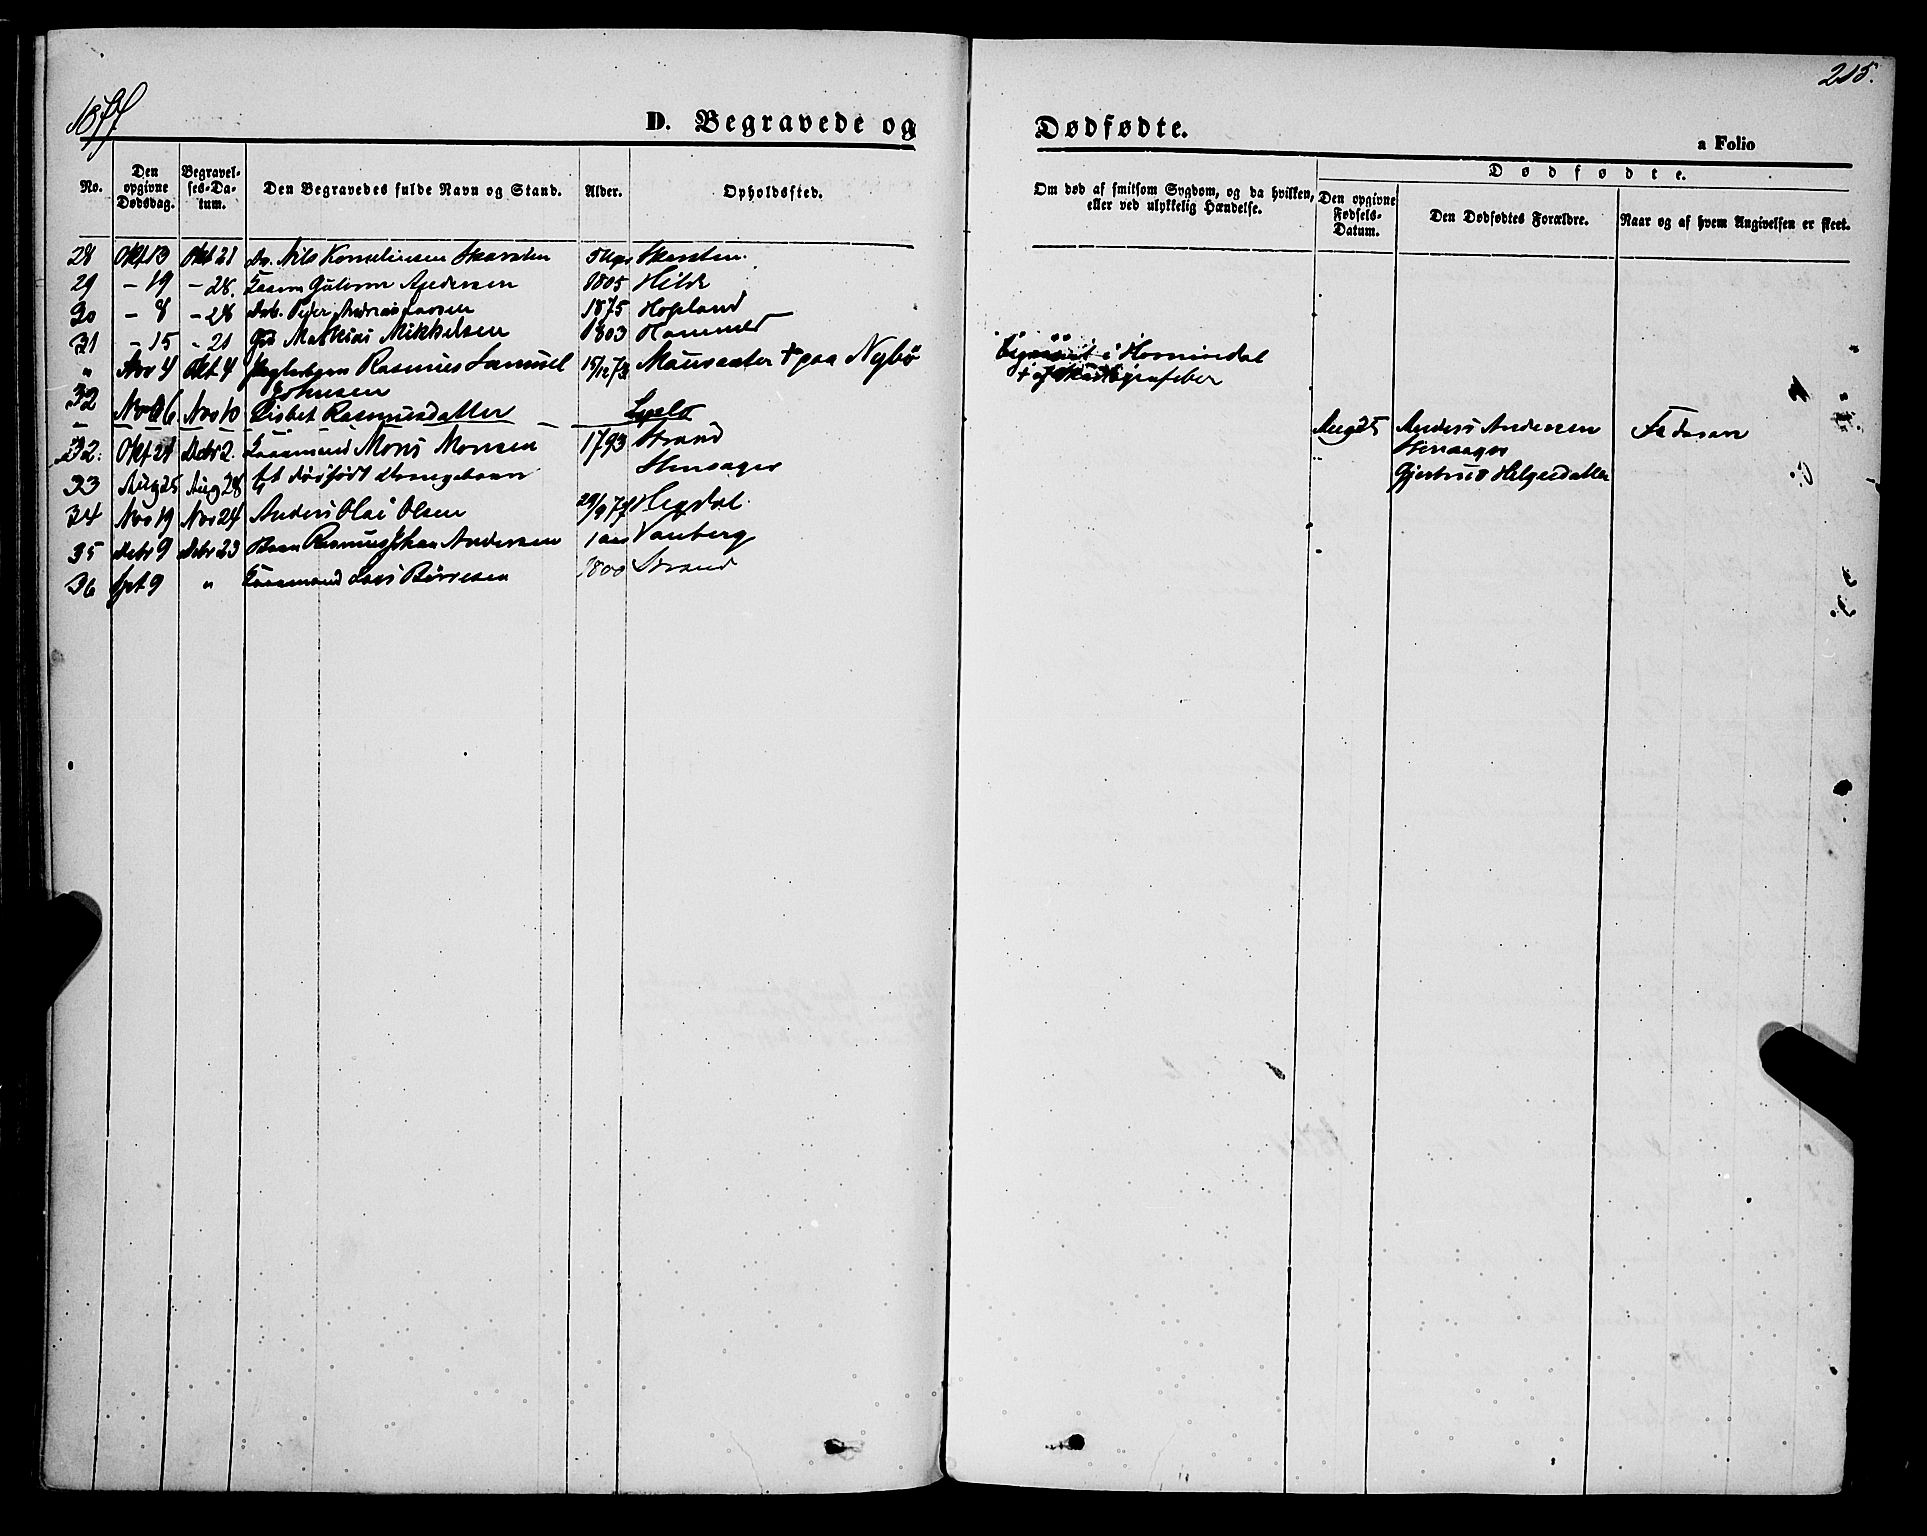 215.
1877
D. Begravede og Dødfødte.
a Folio
No. Den opgivne Dødsdag. Begravelses-Datum. Den Begravedes fulde Navn og Stand. Alder. Opholdssted. Om død af smitsom Sygdom, og da hvilken, eller ved ulykkelig Hændelse. Dødfødte. Den opgivne Fødsels-Datum. Den Dødfødtes Forældre. Naar og af hvem Angivelsen er skeet.
28 Okt 13 Okt 21 Nils Korneliussen Skarsten Skarsten.
29 - 19 - 28. Andersen 1805 Hilde
30 - 8 - 28 Peder Andreas Larsen 1875 Hopland
31 - 15 - 21 Mathias Mikkelsen 1803 Hammer
" Nov 4 Okt 4 Rasmus Samuel 15/12 73 Maursæter + paa Nybø i Hornindal
Johnsen + af
32 Nov 6 Nov 10 Lisbet Rasmusdatter
32. Okt 21 Debr 2. Kaarmand Mons Monsen 1793 Strand Aug 25 Anders Andersen Faderen
33 Aug 25 Aug 28 Et dødfødt Drengebarn Hensager Hensager
Gjertrud Helgesdatter
34 Nov 19 Nov 24 Anders Olai Olsen 29/9 77 Hegdal
35 Debr 9 Debr 23 Barn Rasmus Johan Andersen 1 aar Vanberg
36 Spt 9 " Kaarmand Lars Børresen 1800 Strand